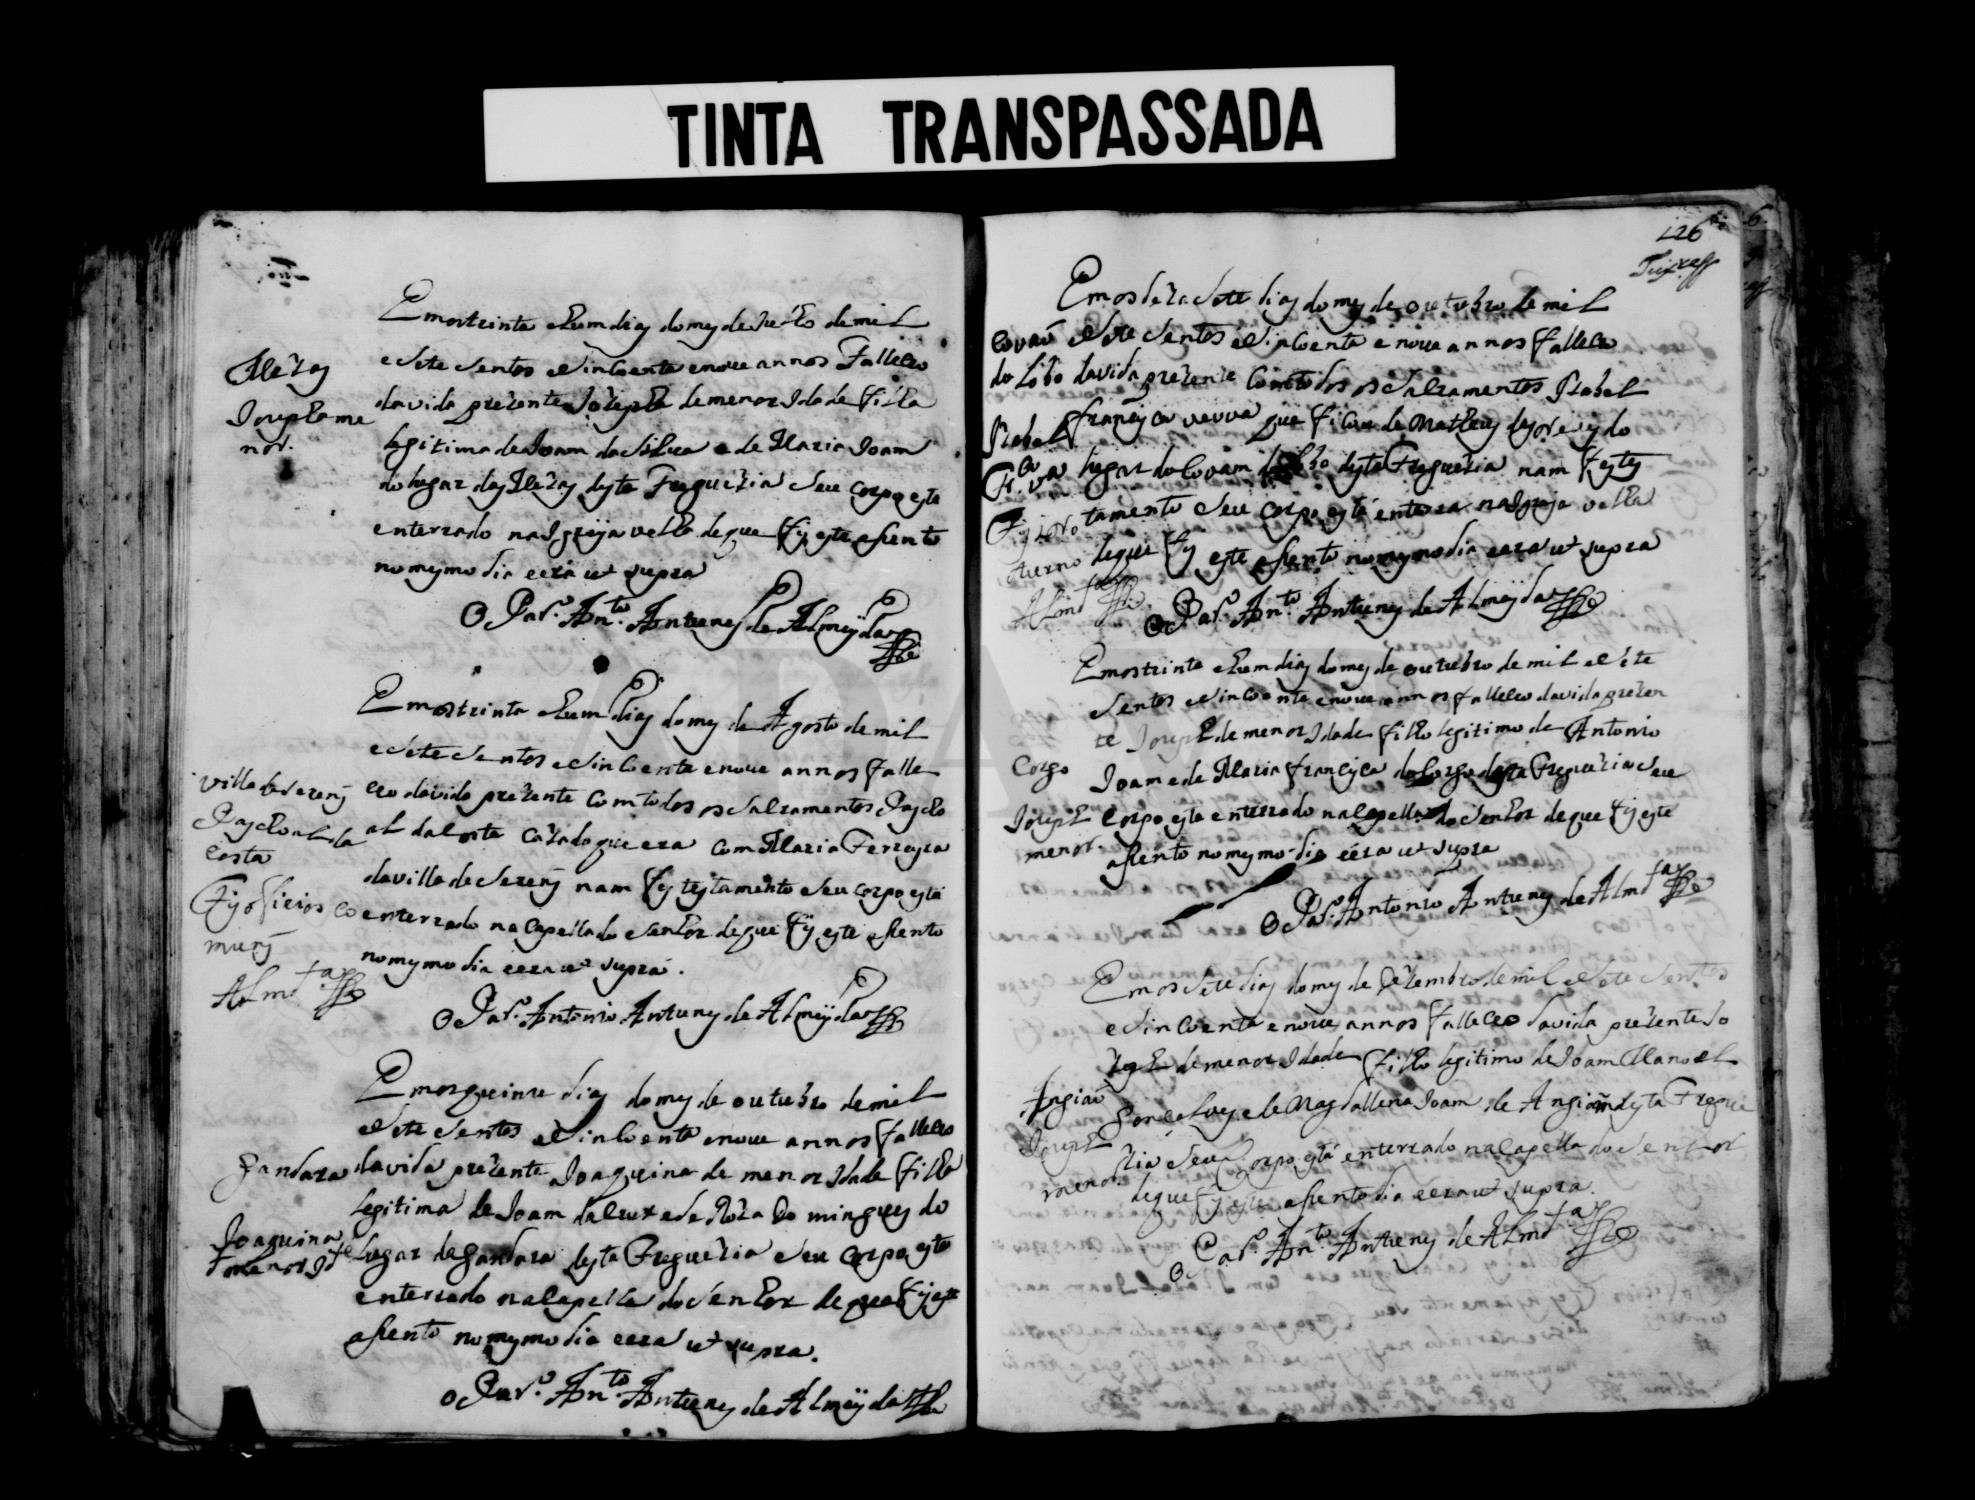 TINTA TRANSPASSADA
Em os trinta e hum dias do mes de Julho de mil
e sete sentos e sincoenta e nove annos Falleceo
da vida prezente Jozepha de menor Idade filha
legitima de Joam da Silva e de Maria Joam
do lugar das Mezas desta Freguezia seu corpo esta
enterrado na Igreija velha de que fis este asento
no mesmo dia e era ut supra
O Par.º An.to Antunes de Almeÿda
Mezas
Josepha me
nor.
Em os trinta e hum dias do mes de Agosto de mil
e sete sentos e sincoenta e nove annos falle
ceo da vida prezente com todos os Salramentos Pascho
al da Costa cazado que era com Maria Ferreyra
da villa de Serem nam fes testamento seu corpo esta
enterrado na Capella do Senhor de que fis este asento
no mesmo dia e era ut supra.
O Par.º Antonio Antunes de Almeÿda
villa de Serem
Paschoal da
Costa
Fis oficios co
muns
Almd.ta
Em os quinze dias do mes de outubro de mil
e sete sentos e sincoenta e nove annos falleceo
da vida prezente Joaquina de menor Idade filha
legitima de Joam da Cruz e de Roza Domingues do
lugar da Gandara desta Freguezia seu corpo esta
enterrado na Capella do Senhor de que fis este
asento no mesmo dia e era ut supra.
O Par.º An.to Antunes de Almeÿda
Gandara
Joaquina
menor Id.e
126
Em os deza sete dias do mes de outubro de mil
e sete sentos e sincoenta e nove annos falleceo
da vida prezente com todos os Salramentos Izabel
francisca veuva que ficou de Matheus
lugar do Covam do Lobo desta Freguezia nam fes tes
tamento seu corpo esta enterra na Igreja velha
de que fis este asento no mesmo dia e era ut supra
O Par.º An.to Antunes de Almeÿda
Covaõ
do Lobo
Izabel
Fr.ca va
Fis
oturno
Almd.ta
Em os trinta e hum dias do mes de outubro de mil e sete
sentos e sincoenta e nove annos falleceo da vida prezen
te Joseph de menor Idade filho legitimo de Antonio
Joam e de Maria francisca do Corgo desta Freguezia seu
corpo esta enterrado na Capella do Senhor de que fis este
asento no mesmo dia e era ut supra
O Par.º Antonio Antunes de Almd.ta
Corgo
Joseph
menor.
Em os sete dias do mes de Dezembro de mil e sete sentos
e sincoenta e nove annos falleceo da vida prezente Jo
zeph de menor Idade filho legitimo de Joam Manoel
Gonsalves e de Magdallena Joam de Angiam desta Fregue
zia seu Corpo esta enterrado na Capella do Senhor
de que fis este asento dia e era ut supra.
O Par.º An.to Antunes de Almd.ta
Angiaõ
Joseph
menor.